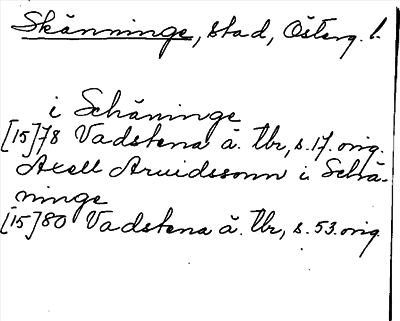 Skänninge, stad, Österg. l.
i Schäninge
[15]78 Vadstena ä. Tbr, s. 17. orig.
Axell Aruidssonn i Schä-
ninge
[15]80 Vadstena ä. Tbr, s. 53. orig